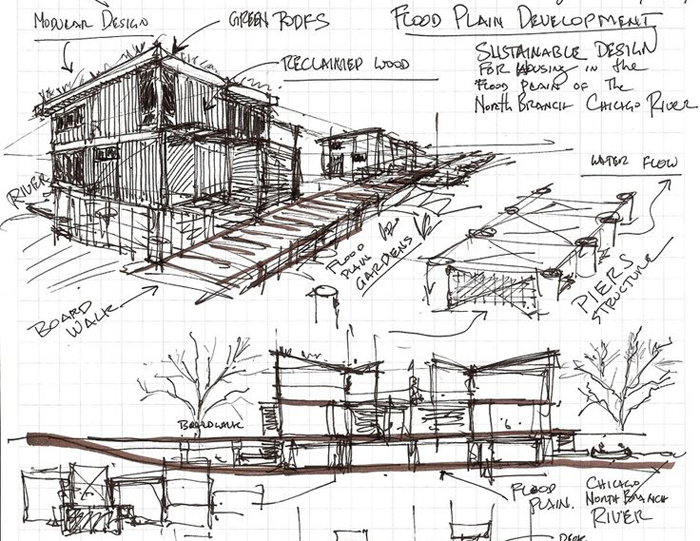 MODULAR DESIGN
GREEN ROOFS
FLOOD PLAIN DEVELOPMENT
RECLAIMED WOOD
SUSTAINABLE DESIGN
FOR HOUSING IN the
FLOOD PLAIN OF THE
NORTH BRANCH CHICAGO RIVER
WATER FLOW
RIVER
FLOOD
PLAIN
GARDENS
PIERS
STRUCTURE
BOARD
WALK
BOARDWALK
FLOOD
PLAIN.
CHICAGO
NORTH BRANCH
RIVER
DECK